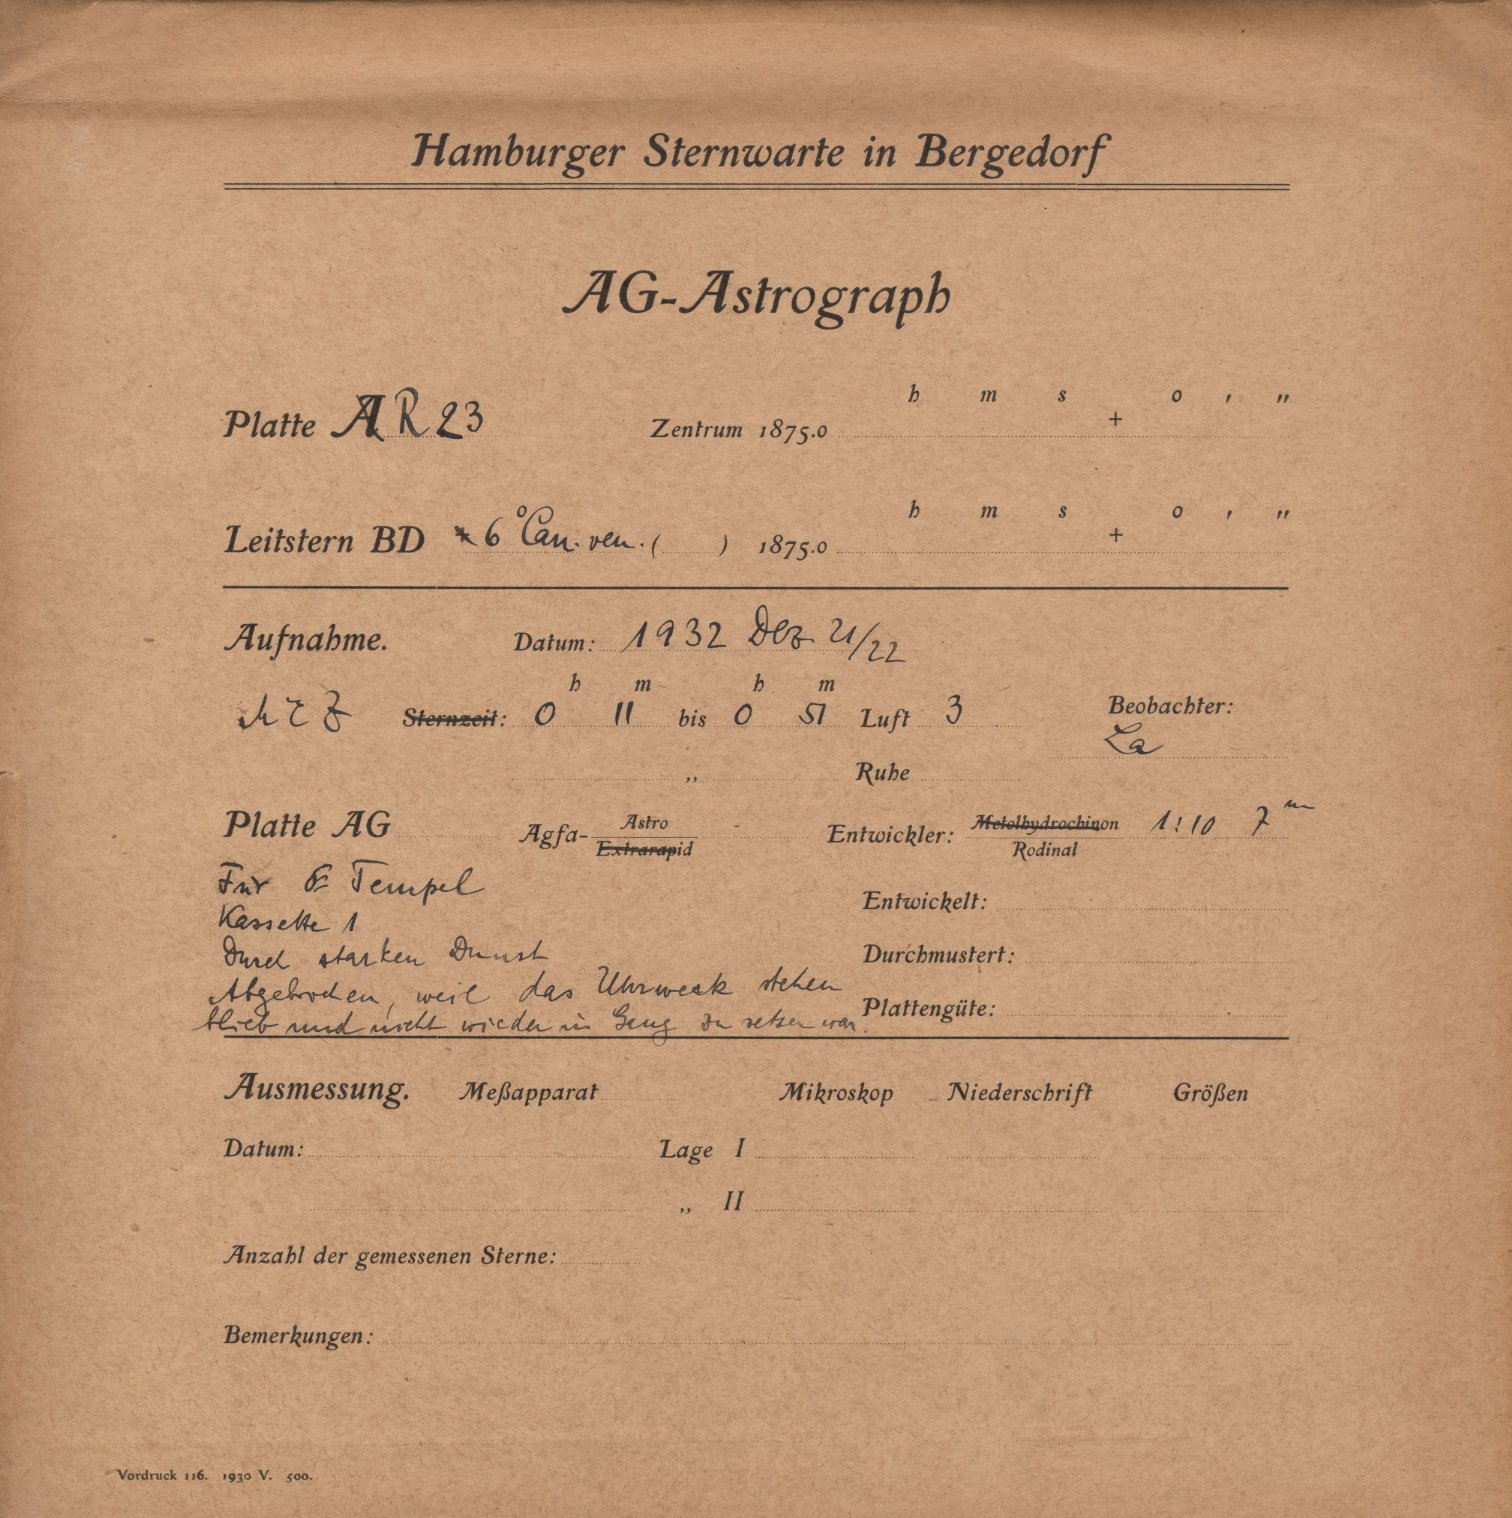 Hamburger Sternwarte in Bergedorf
AG-Astrograph
h m s o ' "
Platte AR 23 Zentrum 1875.0 +
h m s o ' "
Leitstern BD * 6° Can. ven. ( ) 1875.0 +
Aufnahme. Datum: 1932 Dez 21/22
h m h m
MEZ Sternzeit: 0 11 bis 0 51 Luft 3 Beobachter:
La
„ Ruhe
Platte AG Agfa- Astro Extrarapid Entwickler: Metolhydrochinon Rodinal 1:10 7 m
Für Tempel
Kassette 1
Entwickelt:
Durch starken Dunst
Durchmustert:
Abgebrochen, weil das Uhrwerk stehen
Plattengüte:
blieb und nicht wieder in Gang zu setzen war.
Ausmessung. Meßapparat Mikroskop Niederschrift Größen
Datum: Lage I
„ II
Anzahl der gemessenen Sterne:
Bemerkungen:
Vordruck 116. 1930 V. 500.